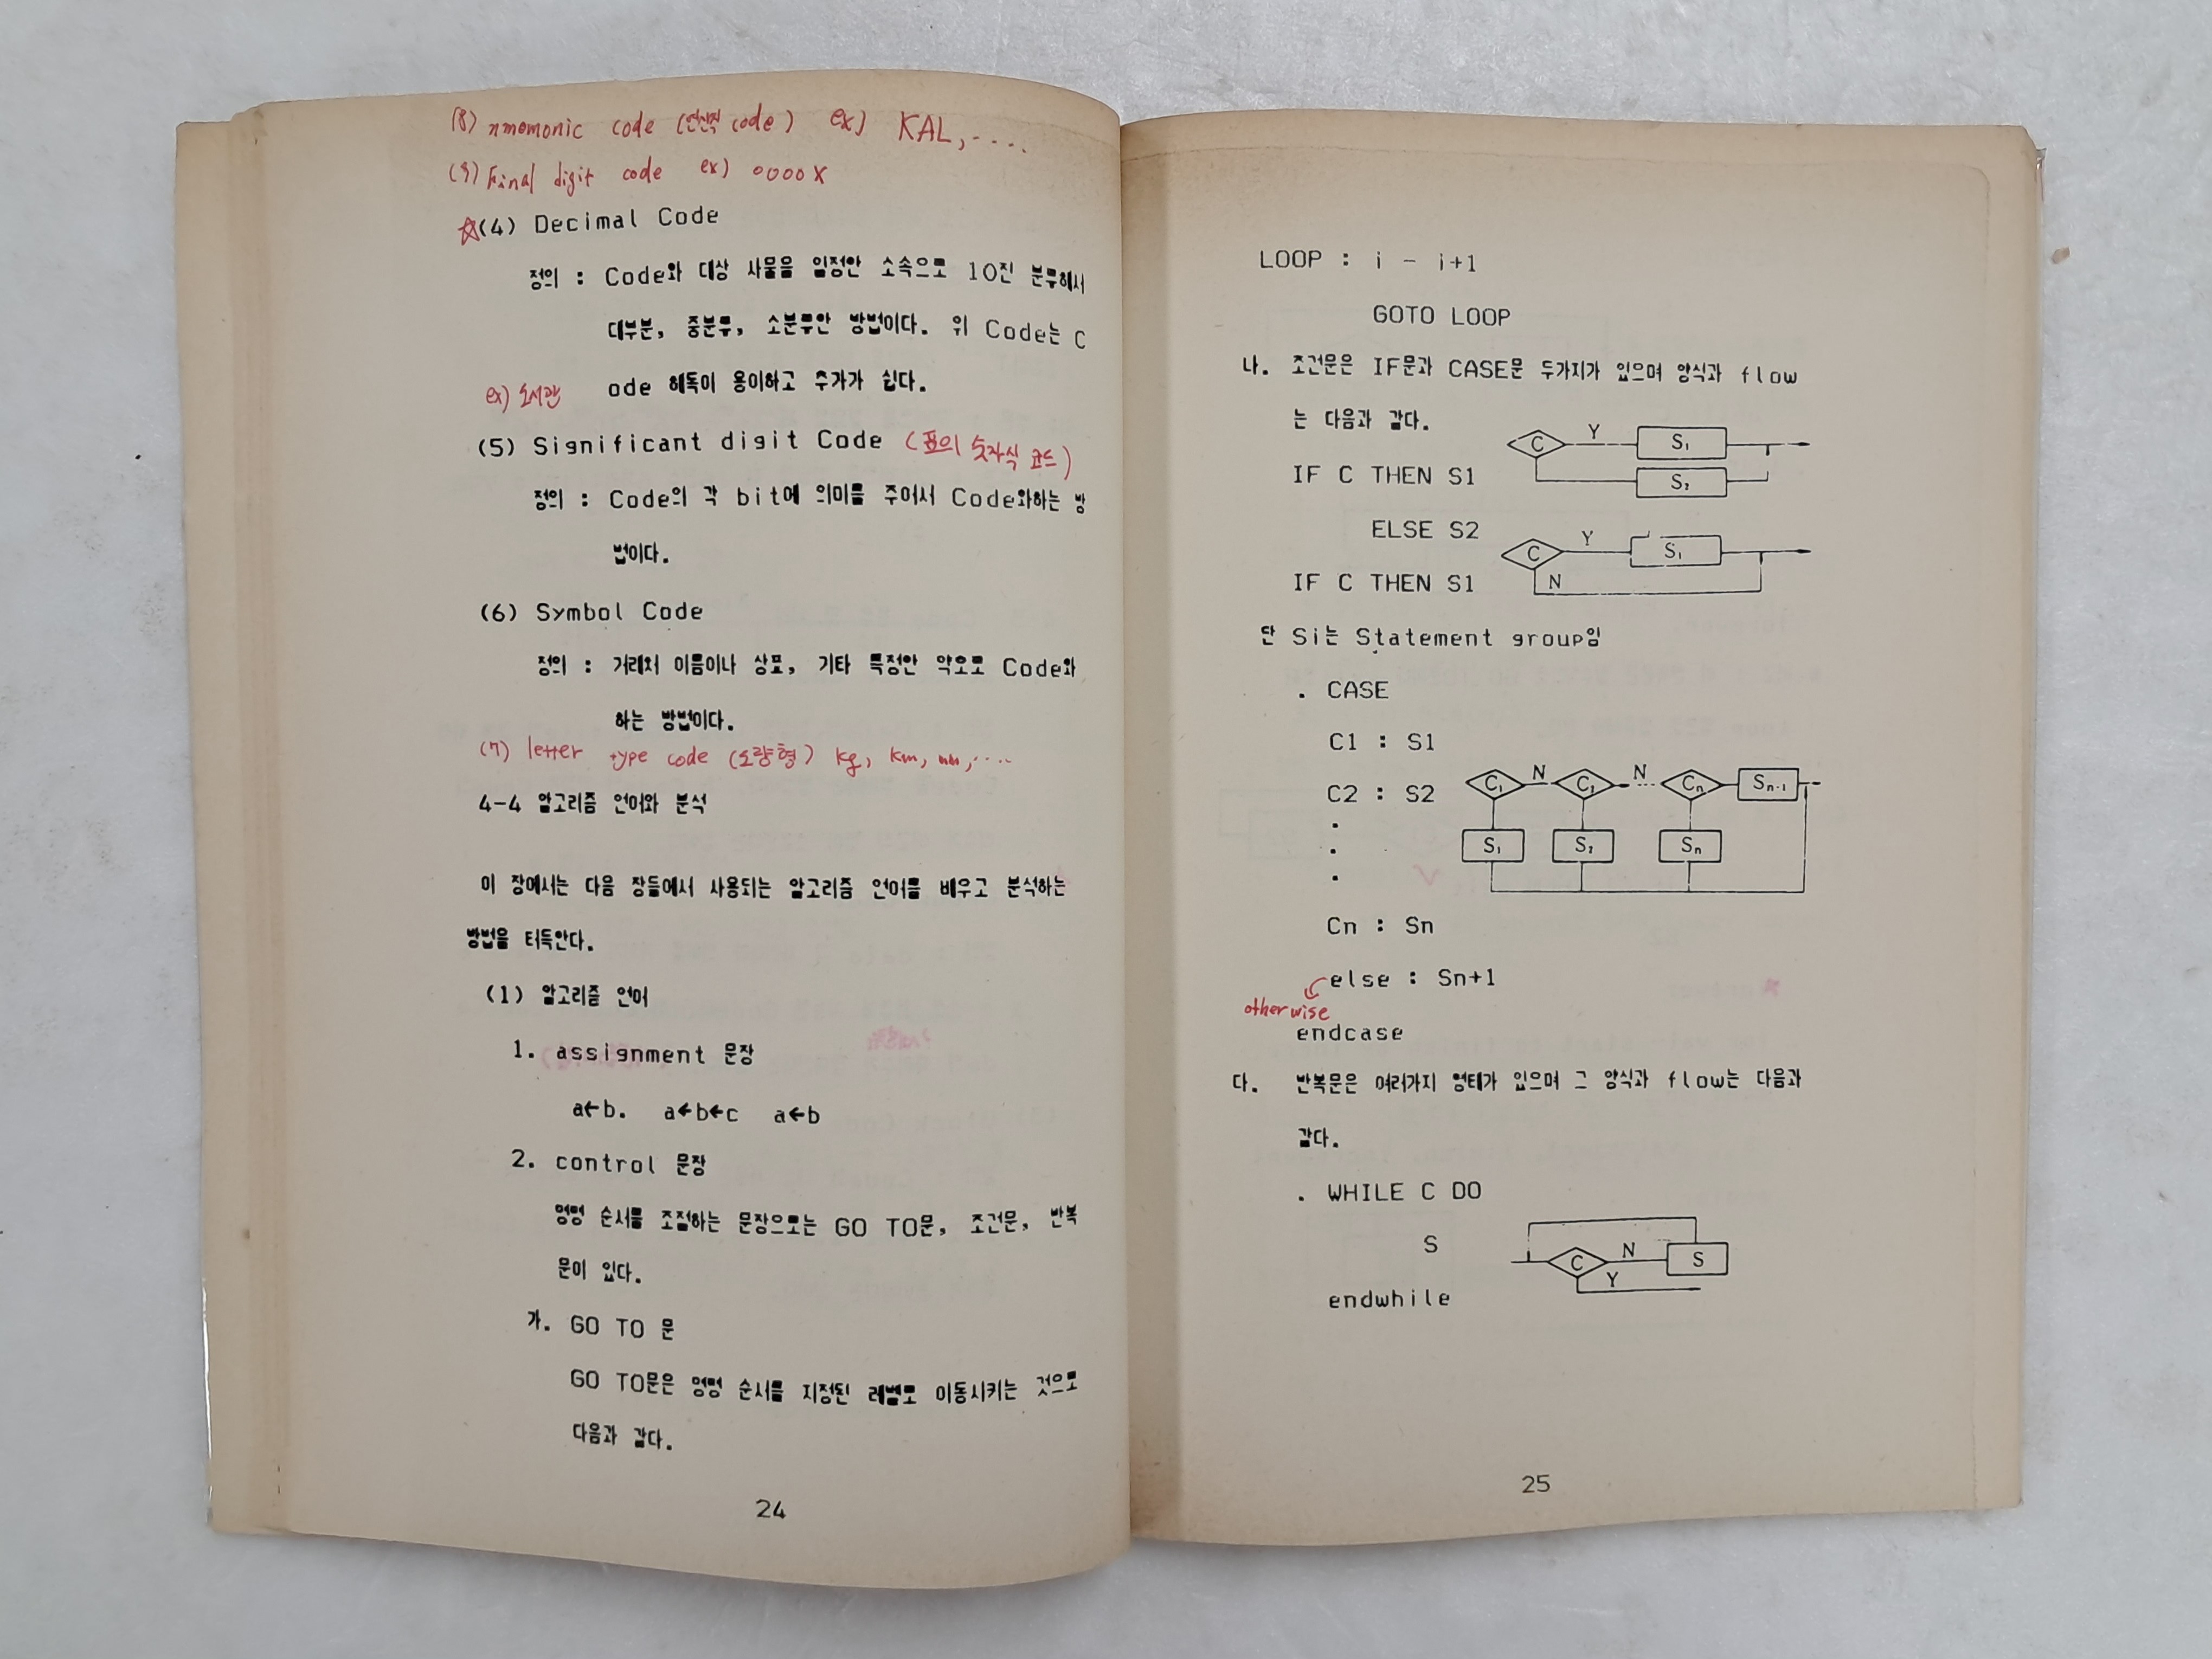 (8) nmemonic code (연상적 code) ex) KAL, ....
(9) Final digit code ex) 0000X
☆(4) Decimal Code
정의 : Code와 대상 사물을 일정한 소속으로 10진 분류해서
대부분, 중분류, 소분류한 방법이다. 위 Code는 C
ode 해독이 용이하고 추가가 쉽다.
ex) 도서관
(5) Significant digit Code (표의 숫자식 코드)
정의 : Code의 각 bit에 의미를 주어서 Code와하는 방
법이다.
(6) Symbol Code
정의 : 거래처 이름이나 상표, 기타 특정한 약호로 Code와
하는 방법이다.
(7) letter type code (도량형) kg, km, mm, ....
4-4 알고리즘 언어와 분석
이 장에서는 다음 장들에서 사용되는 알고리즘 언어를 배우고 분석하는
방법을 터득한다.
(1) 알고리즘 언어
1. assignment 문장
a←b. a←b←c a←b
2. control 문장
명령 순서를 조절하는 문장으로는 GO TO문, 조건문, 반복
문이 있다.
가. GO TO 문
GO TO문은 명령 순서를 지정된 레벨로 이동시키는 것으로
다음과 같다.
24
LOOP : i - i+1
GOTO LOOP
나. 조건문은 IF문과 CASE문 두가지가 있으며 양식과 flow
는 다음과 같다.
C Y S₁
S₂
IF C THEN S1
ELSE S2
C Y S₁
N
IF C THEN S1
단 Si는 Statement group임
. CASE
C1 : S1
C₁ N C₂ N ... Cn Sn-1
C2 : S2
S₁ S₂ Sn
.
.
.
Cn : Sn
else : Sn+1
otherwise
endcase
다. 반복문은 여러가지 형태가 있으며 그 양식과 flow는 다음과
같다.
. WHILE C DO
S
C N S
Y
endwhile
25